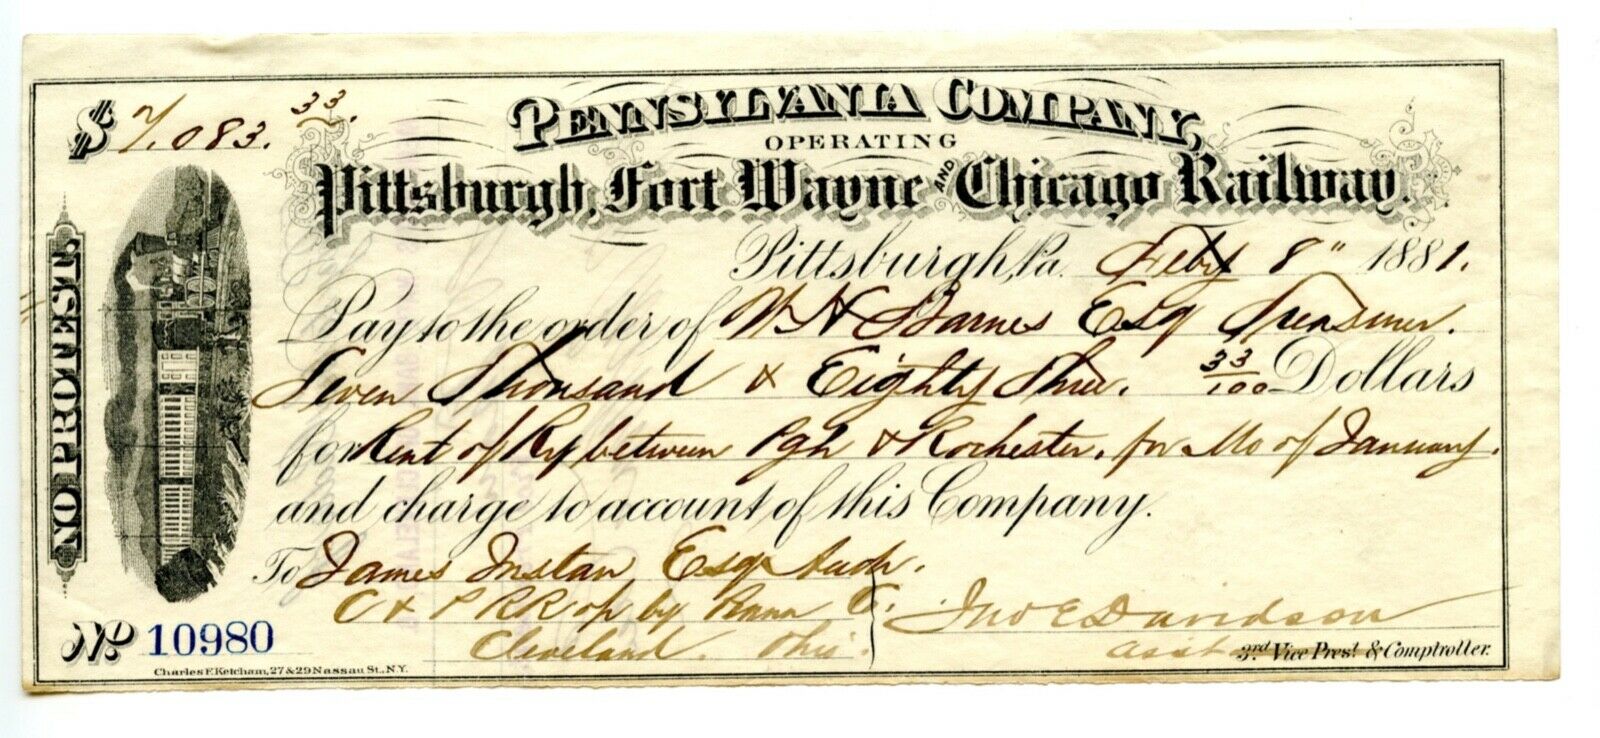 $ 7,083.33.
PENNSYLVANIA COMPANY,
OPERATING
Pittsburgh, Fort Wayne AND Chicago Railway.
NO PROTEST.
Pittsburgh, Pa. Feby 8" 1881.
Pay to the order of W H Barnes Esq Treasurer.
Seven Thousand & Eighty Three. 33/100 Dollars
for Rent of Ry between Pgh & Rochester, for Mo of January.
and charge to account of this Company.
To James Esq Aud.
C & P RR op by Penna C.
Cleveland. Ohio.
Jno E Davidson
asst 3rd Vice Prest & Comptroller.
No. 10980
Charles F. Ketcham, 27 & 29 Nassau St., N.Y.